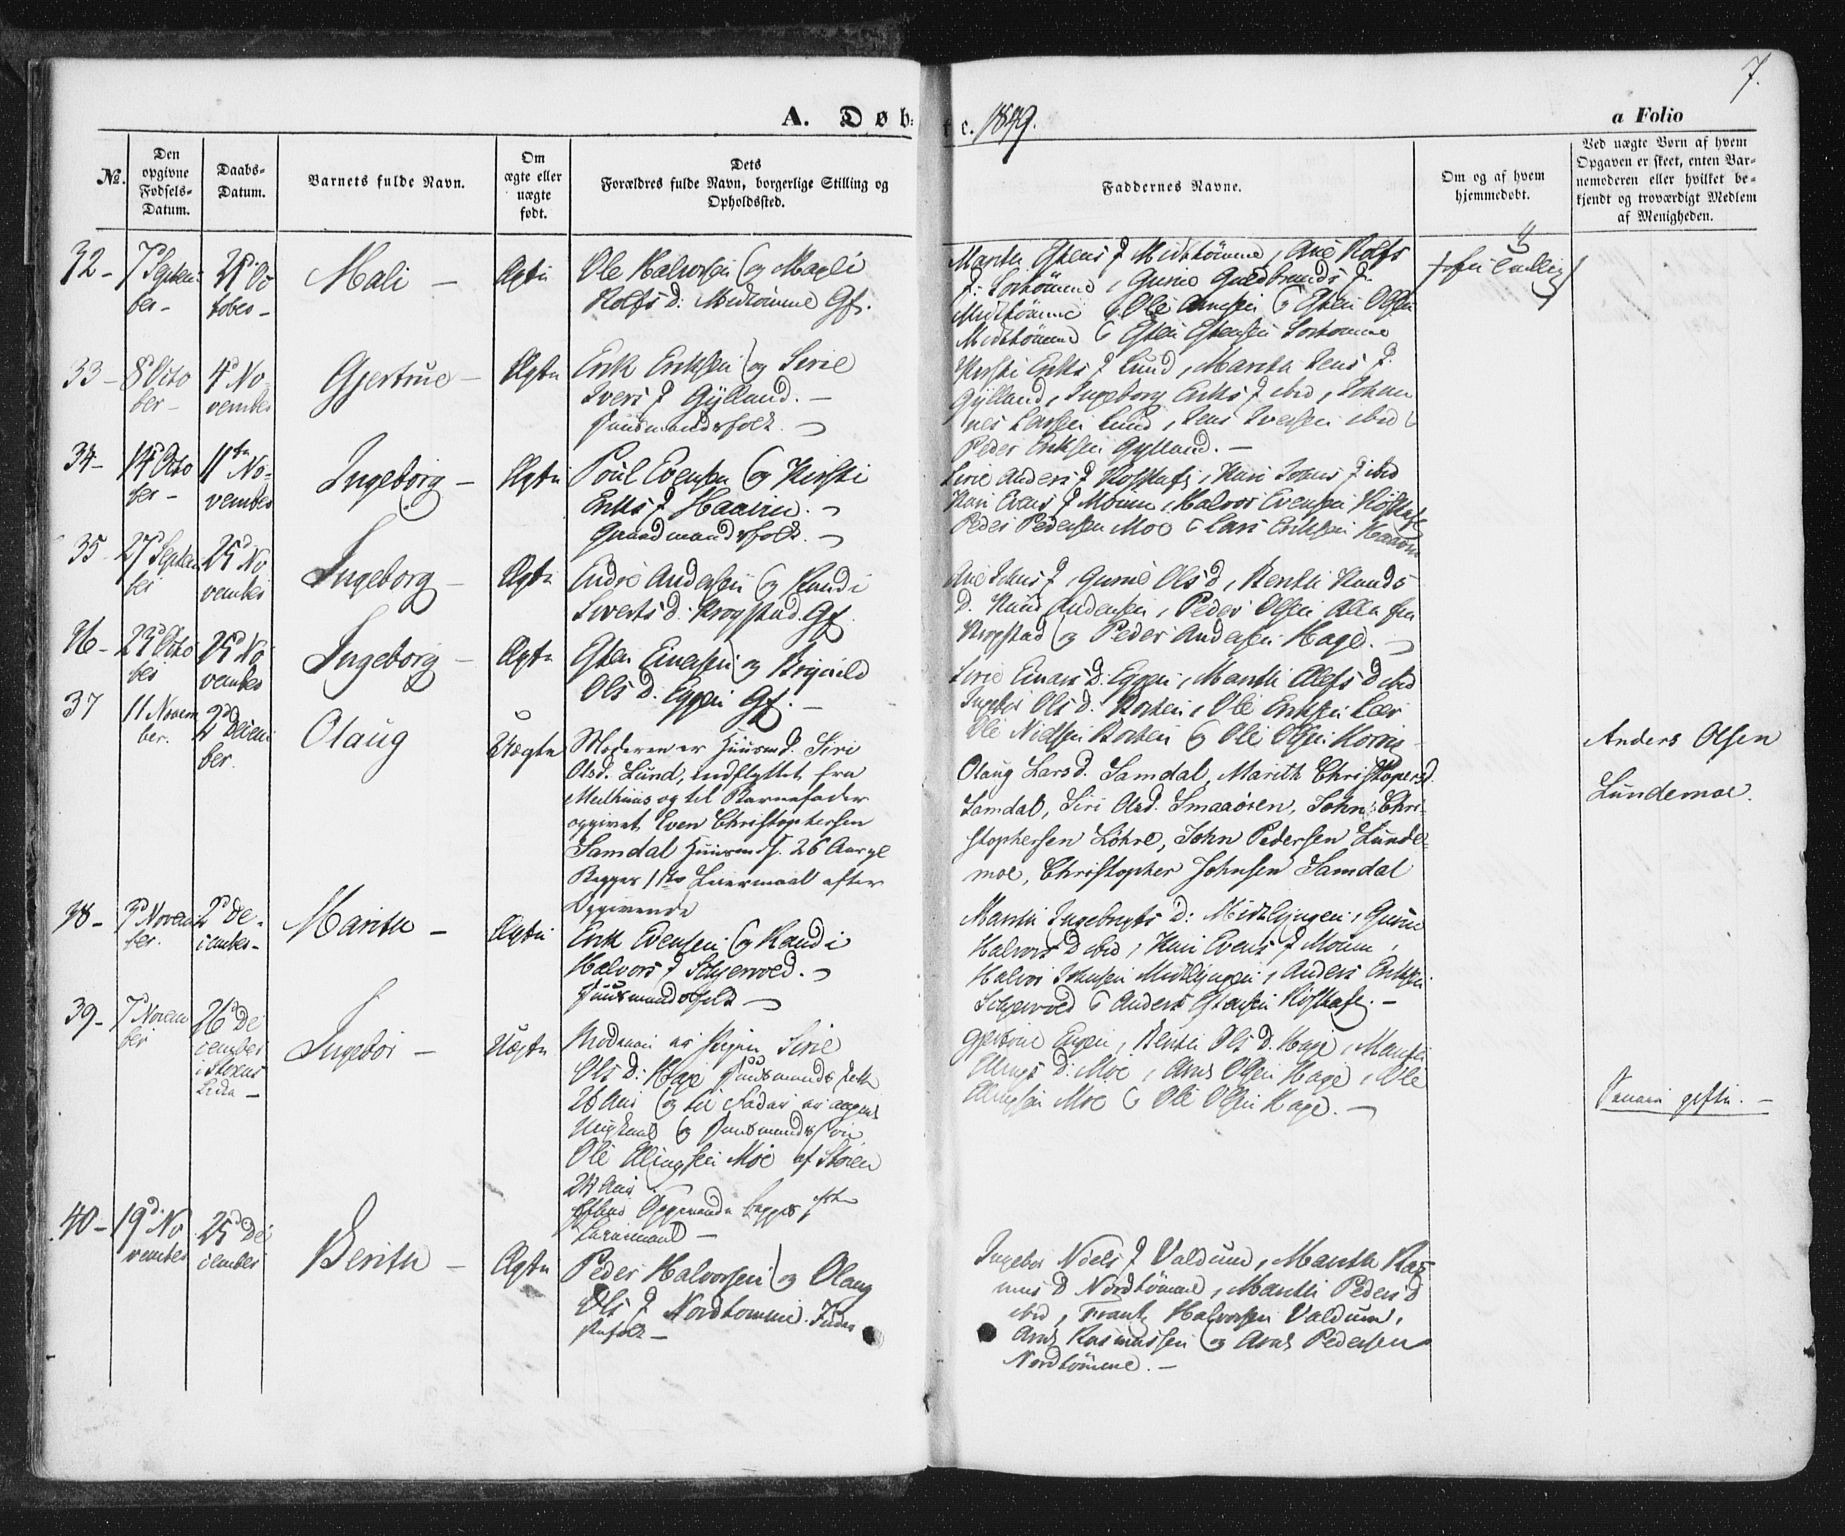 7.
A. Døb-
t e. 1849.
a Folio
No.
Den opgivne Fødsels-Datum.
Daabs-Datum.
Barnets fulde Navn.
Om ægte eller uægte født.
Dets Forældres fulde Navn, borgerlige Stilling og Opholdssted.
Faddernes Navne.
Om og af hvem hjemmedøbt.
Ved uægte Børn af hvem Opgaven er skeet, enten Barnemoderen eller hvilket bekjendt og troværdigt Medlem af Menigheden.
32 - 7d Septem
ber -
21d Oc
tober -
Mali -
Ægte
Ole Halvorsen og Magli
Rolfs d: Midtømme Gf.
Marith Estens d Midttømme, Ane Rolfs
d: Sortømme, Gurine Guldbrands d:
Midttømme, Ole Arnesen, Esten Olsen
Midttømme & Esten Estensen Sortomme
33 - 8d Octo
ber -
4d No-
vember
Gjertrue -
Ægte
Erik Eriksen og Sirie
Ivers d Gylland. -
Huusmandsfolk.
Kirsti Eriks d Lund, Marith Jens d:
Gylland, Ingeborg Eriks d ibid, Johan
nes Larssen Lund, Jens Iversen ibid
Peder Eriksen Gylland. -
34 - 14d Octo
ber -
11te No-
vember
Ingeborg -
Ægte
Poul Evensen og Kirsti
Eriks d Haaviin. -
Gaardmandsfolk. -
Sirie Anders d Kofstaf, Kari Johns d ibid
Kari Evens d Moum, Halvor Evensen
Peder Pedersen Moe & Lars Eriksen Haavin
35 - 27d Septem
ber
25d No
vember
Ingeborg -
Ægte
Endre Andersen og Randi
Siverts d: Krogstad Gf
Ane Johns d, Gurine Ols d, Berith Knuds
D. Knud Andersen, Peder Olsen Alle fra
Krogstad og Peder Andersen Hage. -
36 - 23d Octo
ber
25d No
vember
Ingeborg -
Ægte
Esten Einersen og Brynild
Ols D: Eggen Gf. -
Sirie Einars D: Eggen, Marith Olefs D ibid
Ingebor Ols d. Borten, Ole Eriksen Lær
Ole Nielsen Borten & Ole Olsen
37
11 Novem
ber.
2d Decem
ber.
Olaug
Uægte
Moderen er Huusmd. Siri
Olsd. Lund, indflyttet fra
Meelhuus og til Barnefader
opgivet Even Christophersen
Samdal Huusmds. 26 Aar gl
Begges 1ste Leiermaal efter
Opgivende
Olaug Larsd. Samdal, Marith Christophersd.
Samdal, Siri Olsd. Smaaøien, John Chri-
stophersen Løhre, John Pedersen Lunde-
moe, Christopher Johnsen Samdal
Anders Olsen
Lundemoe.
38 - 3d Novem
ber.
2d De-
cember -
Marith -
Ægte
Erik Evensen og Randi
Halvors d Schjervold. -
Huusmandsfolk -
Marith Ingebrigts D: Midtlyngen, Gurine
Halvors D ibid, Kari Evens d Moum,
Halvor Johnsen Midtlyngen, Anders Eriksen
Schjervold & Anders Estensen Kofstafe. -
39 - 7d Novem
ber
26d De
cember
i Størens
Kirke -
Ingebor -
Uægte
Moderen er Pigen Sirie
Ols D: Hage Huusmands
26 Aar og til Fader er angivet
Ungkarl og Huusmandssøn
Ole Ellingsen Moe af Støren
24 Aar
Opgivende begges
Leiermaal -
Gjertrue Engen, Berith Ols D. Hage, Marith
Ellings D: Moe, Arnt Olsen Hage, Ole
Ellingsen Moe & Ole Olsen Hage. -
40 - 19d No
vember
25d De
cember
Berith -
Ægte
Peder Halvorsen og Olaug
Ols d Nordtomme
Ingebor Niels d Valdum, Marith Ras
mus D Nordtømme, Marith Peders D
ibid, Frants Halvorsen Valdum,
Arnt Rasmussen og Arnt Pedersen
Nordtømme. -